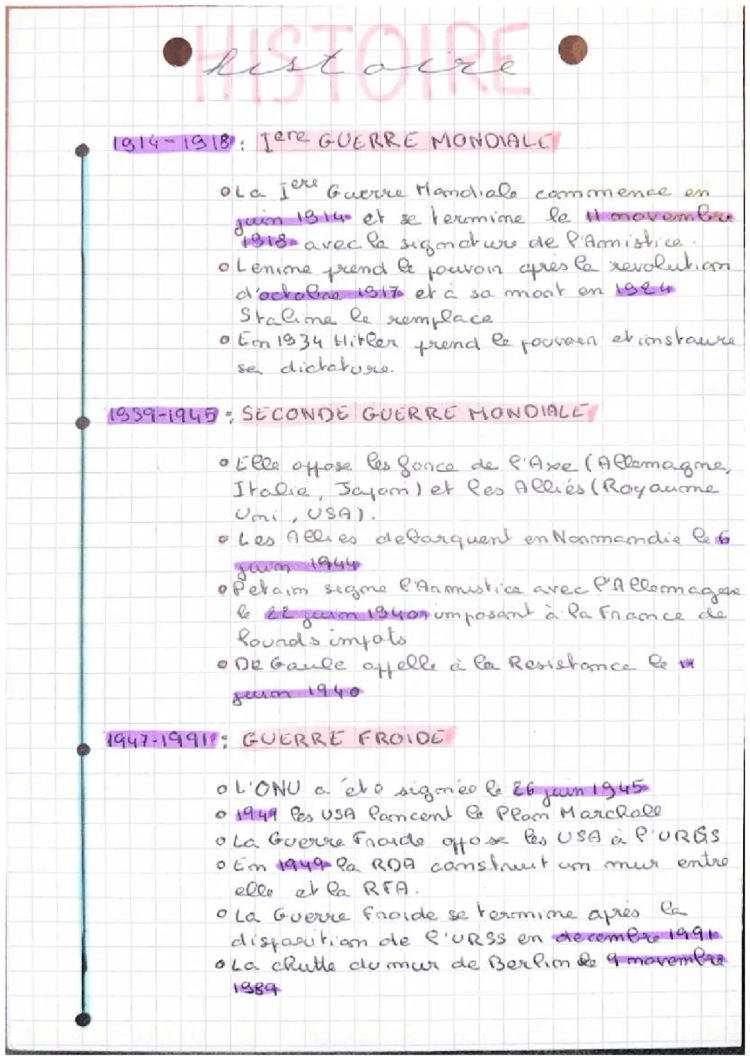 HISTOIRE
histoire
1914-1918 : Iere GUERRE MONDIALE
La Iere Guerre Mondiale commence en
juin 1914 et se termine le 11 novembre
1918 avec la signature de l'Armistice.
Lenine prend le pouvoir après la revolution
d'octobre 1917 et à sa mort en 1924
Staline le remplace
En 1934 Hitler prend le pouvoir et instaure
sa dictature.
1939-1945 : SECONDE GUERRE MONDIALE
Elle oppose les force de l'Axe (Allemagne,
Italie, Japon) et les Alliés (Royaume
Uni, USA).
Les Allies debarquent en Normandie le 6
juin 1944
Petain signe l'Armistice avec l'Allemagne
le 22 juin 1940 imposant à la France de
lourds impots
De Gaule appelle à la Resistance le
juin 1940
1947-1991 : GUERRE FROIDE
L'ONU a été signée le 26 juin 1945
les USA lancent le Plan Marchall
La Guerre Froide oppose les USA à l'URSS
En 1949 la RDA construit un mur entre
elle et la RFA.
La Guerre Froide se termine après la
disparition de l'URSS en decembre 1991
La chutte du mur de Berlin le 9 novembre
1989